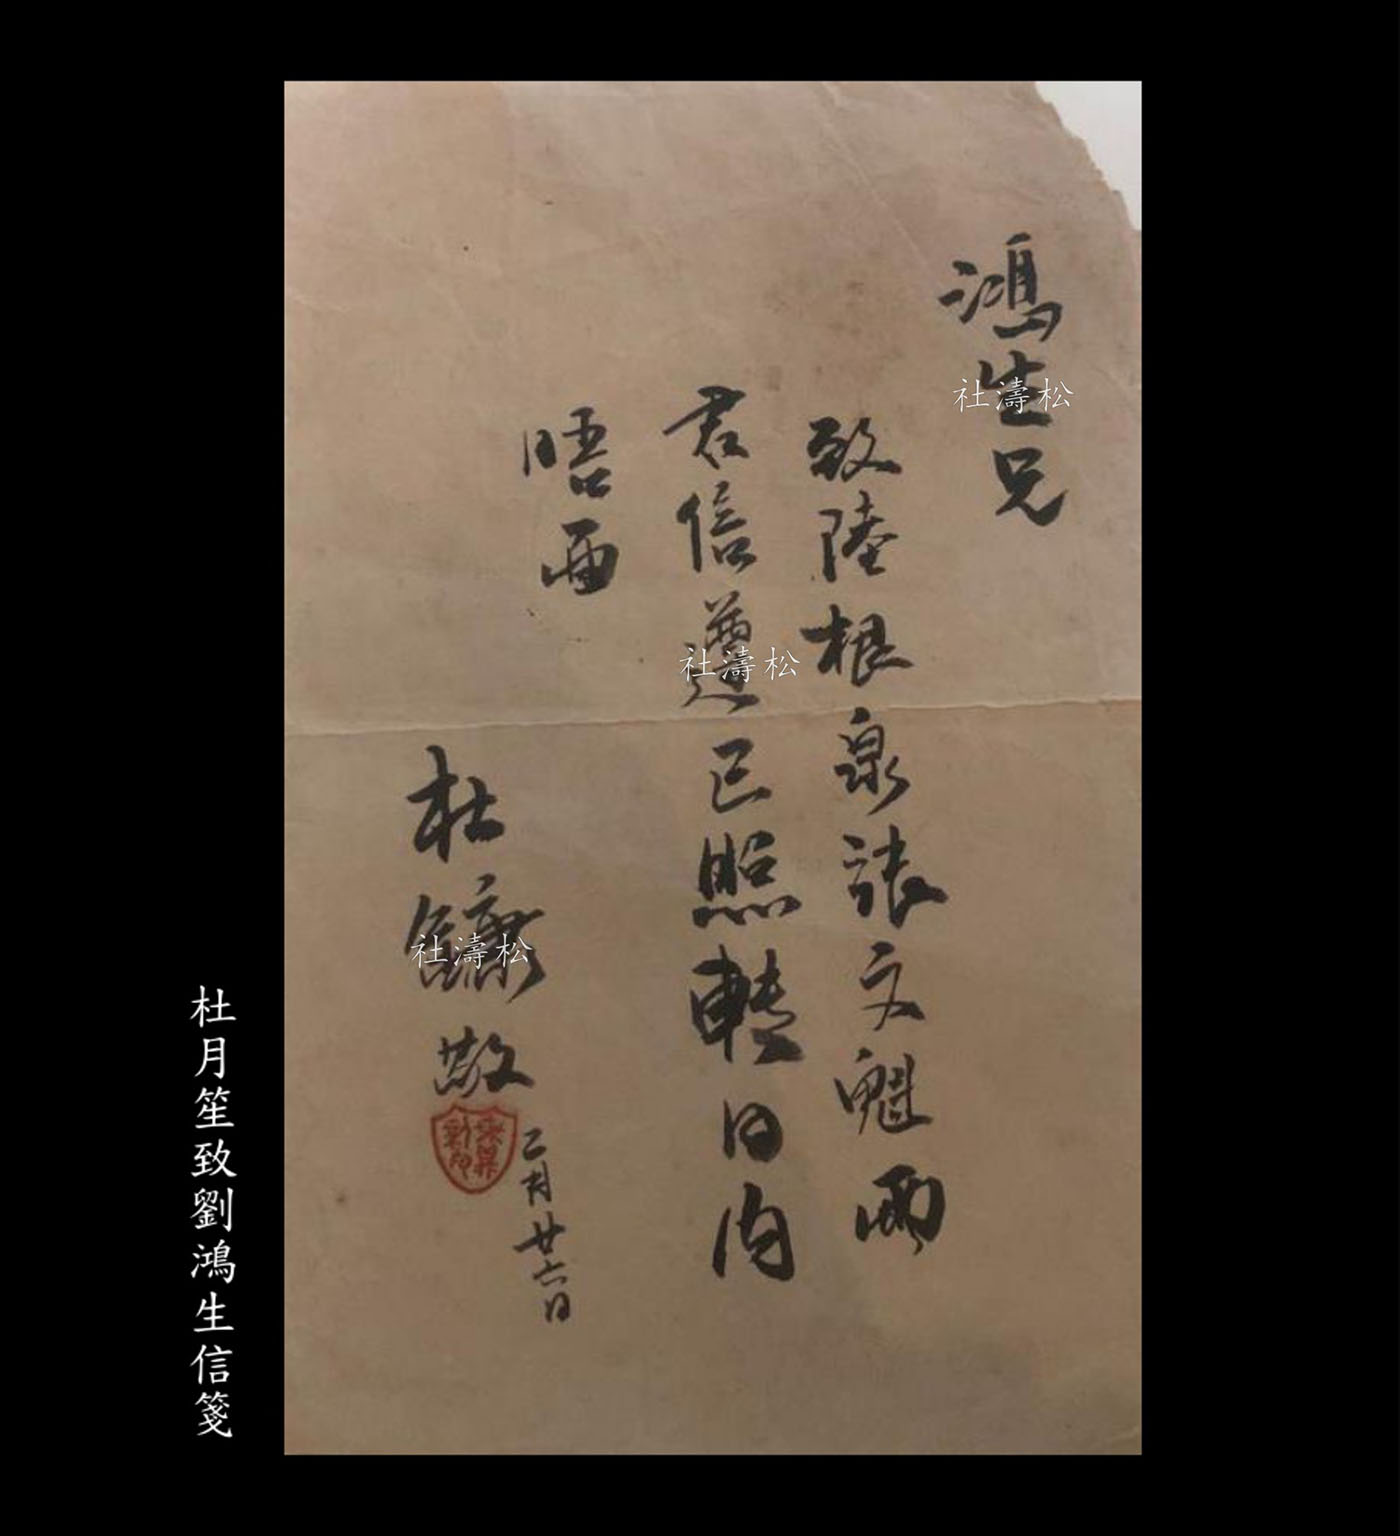 鴻生兄
致陸根泉張文魁兩
君信遵已照轉日內
晤面
杜鏞敬
二月廿六日
松濤社
松濤社
松濤社
杜月笙致劉鴻生信箋